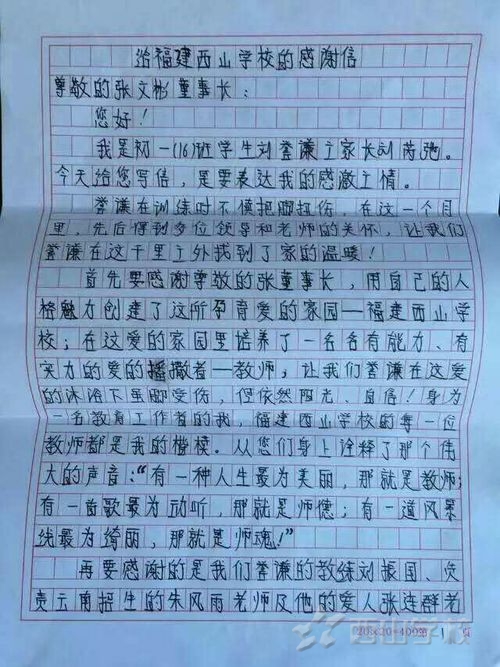 给福建西山学校的感谢信
尊敬的张文彬董事长：
您好！
我是初一(16)班学生刘誉谦之家长刘芮弛。
今天给您写信，是要表达我的感激之情。
誉谦在训练时不慎把脚拉伤，在这一个月
里，先后得到多位领导和老师的关怀，让我们
誉谦在这千里之外找到了家的温暖！
首先要感谢尊敬的张董事长，用自己的人
格魅力创建了这所孕育爱的家园—福建西山学
校；在这爱的家园里培养了一名名有能力、有
实力的爱的播撒者—教师；让我们誉谦在这爱
的沐浴下虽脚受伤，但依然阳光、自信！身为
一名教育工作者的我，福建西山学校的每一位
教师都是我的楷模。从您们身上诠释了那个伟
大的声音：“有一种人生最为美丽，那就是教师；
有一首歌最为动听，那就是师德；有一道风景
线最为绮丽，那就是师魂！”
再要感谢的是我们誉谦的教练刘振国、负
责云南招生的朱风雨老师及他的爱人张连群老
20×20=400 第 1 页
西山学校